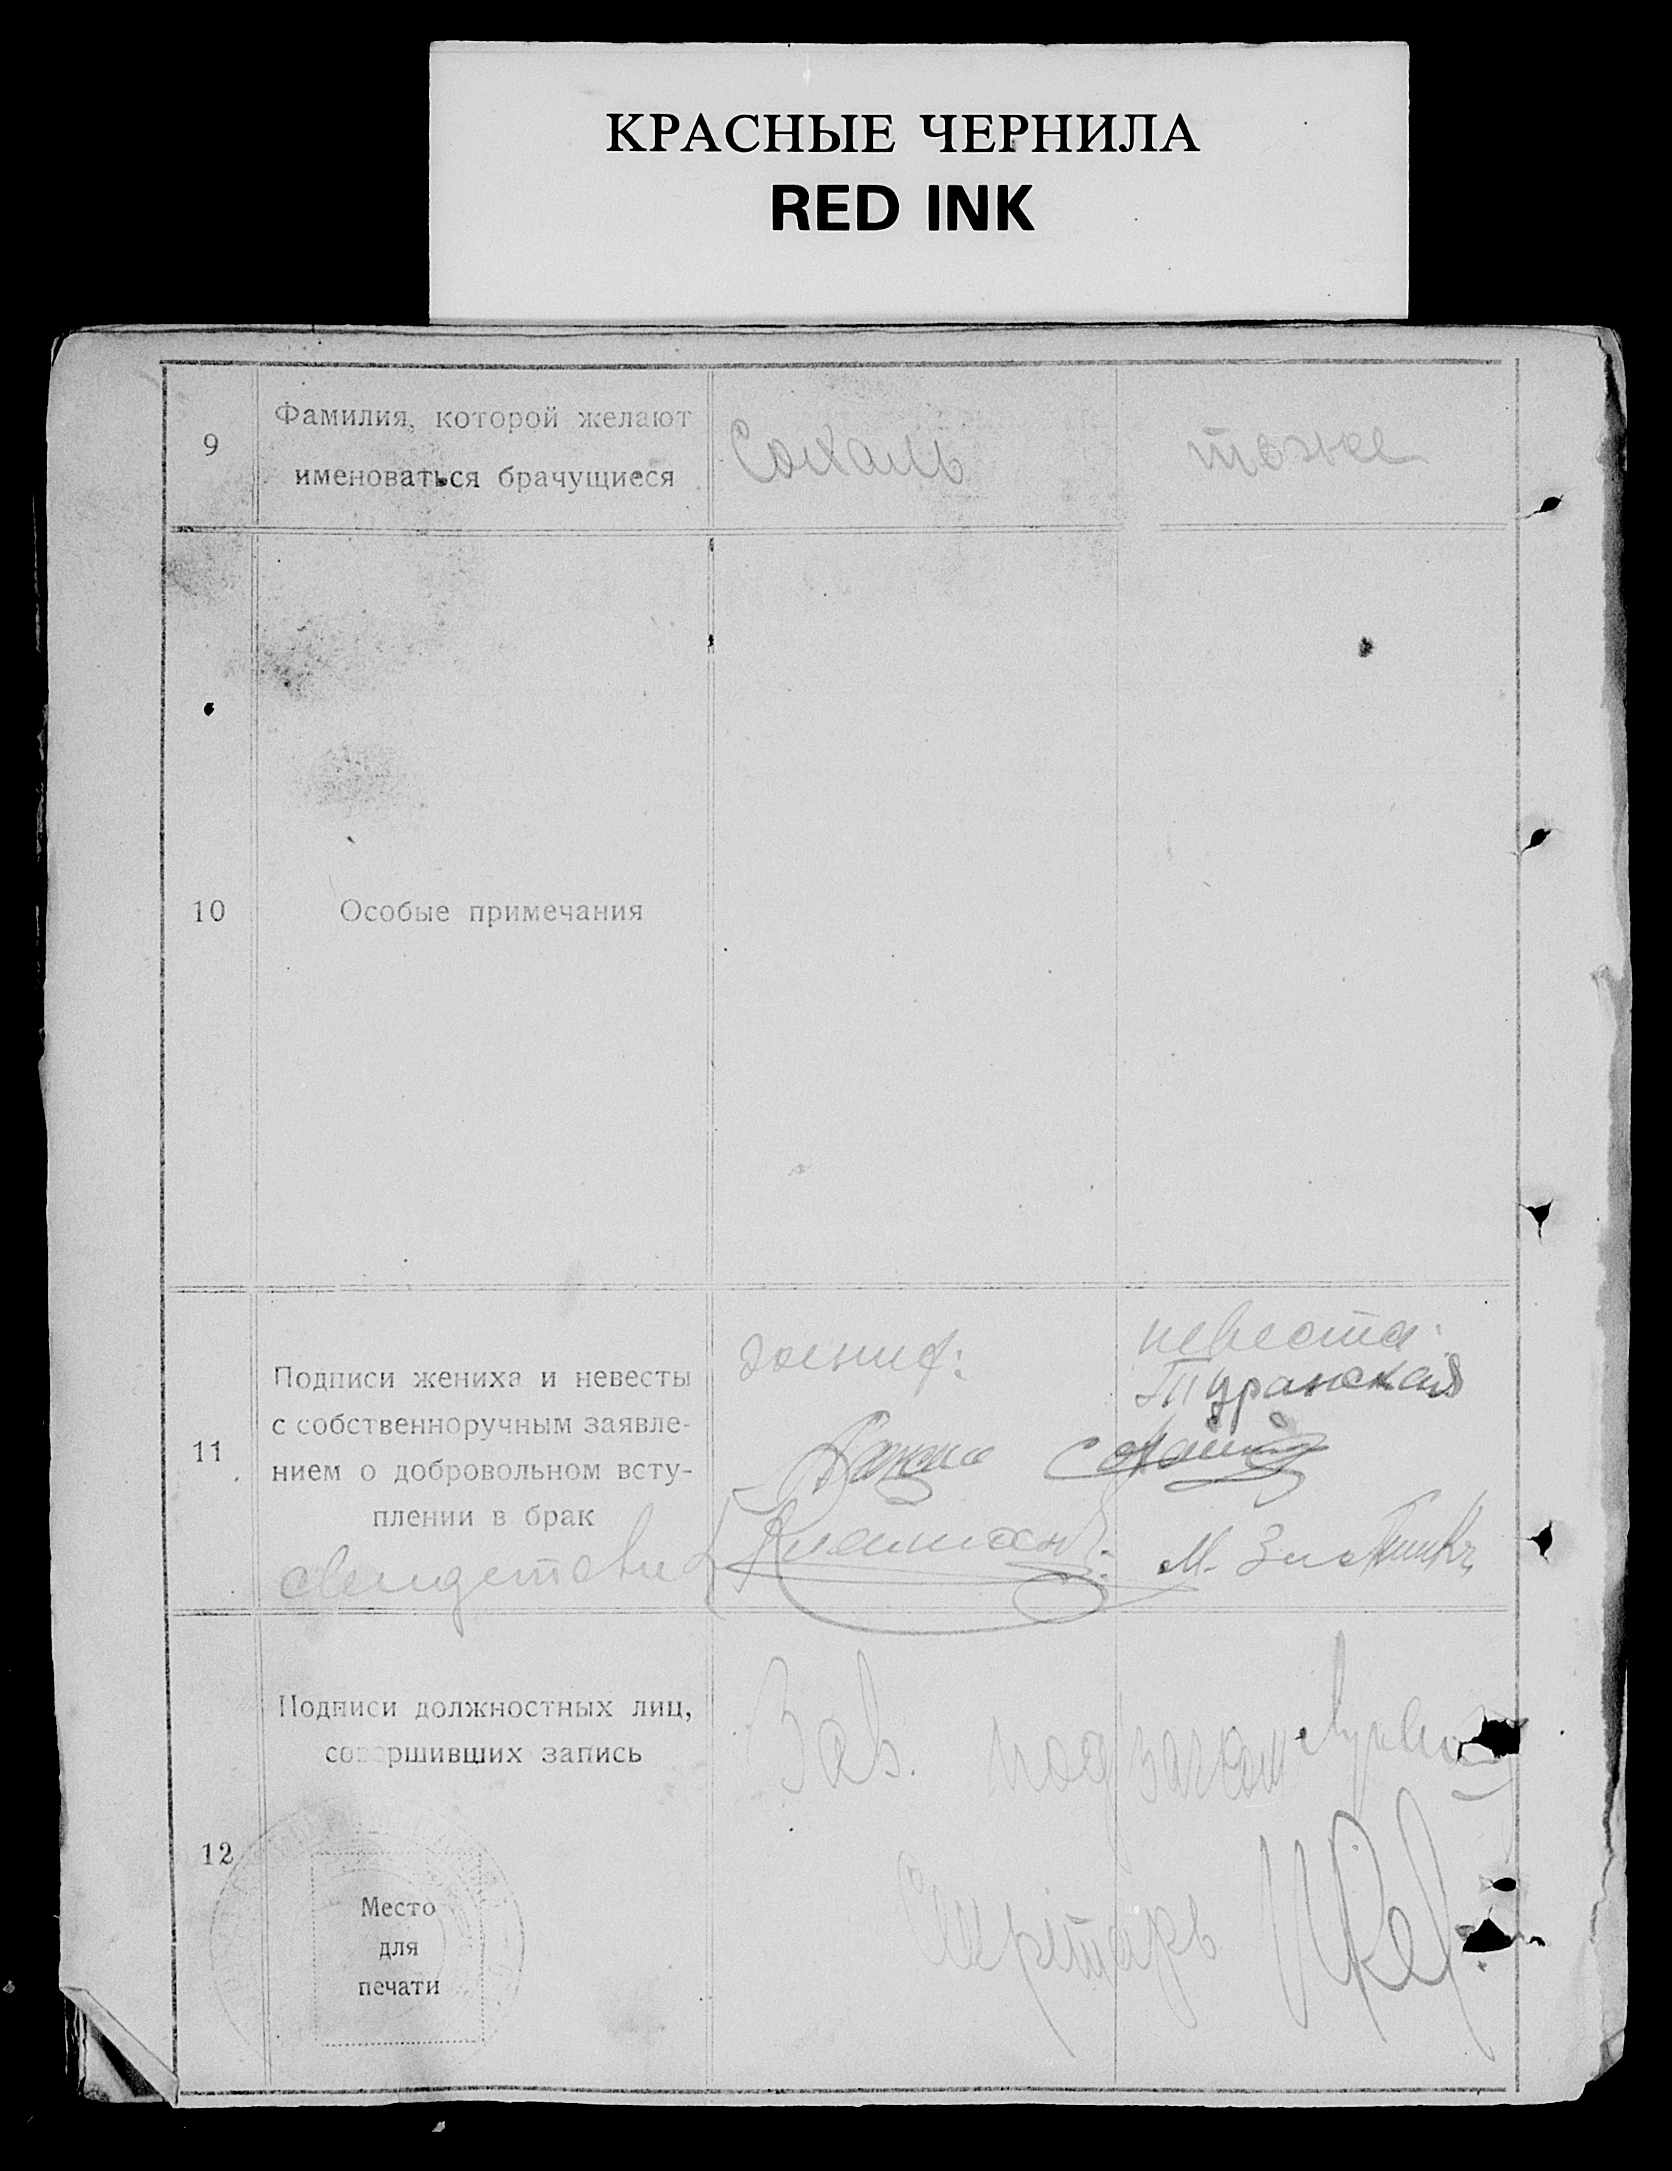 КРАСНЫЕ ЧЕРНИЛА
RED INK
9
Фамилия, которой желают
именоваться брачущиеся
Сокаль
тоже
10
Особые примечания
11
Подписи жениха и невесты
с собственноручным заявле-
нием о добровольном всту-
плении в брак
жених:
невеста:
Туранская
М.
12
Подписи должностных лиц,
совершивших запись
Зав.
Секретарь
Место
для
печати